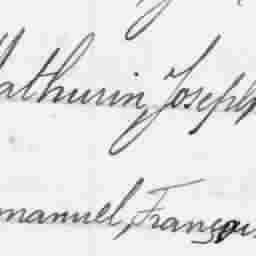 Mathurin, Joseph
Emmanuel, François